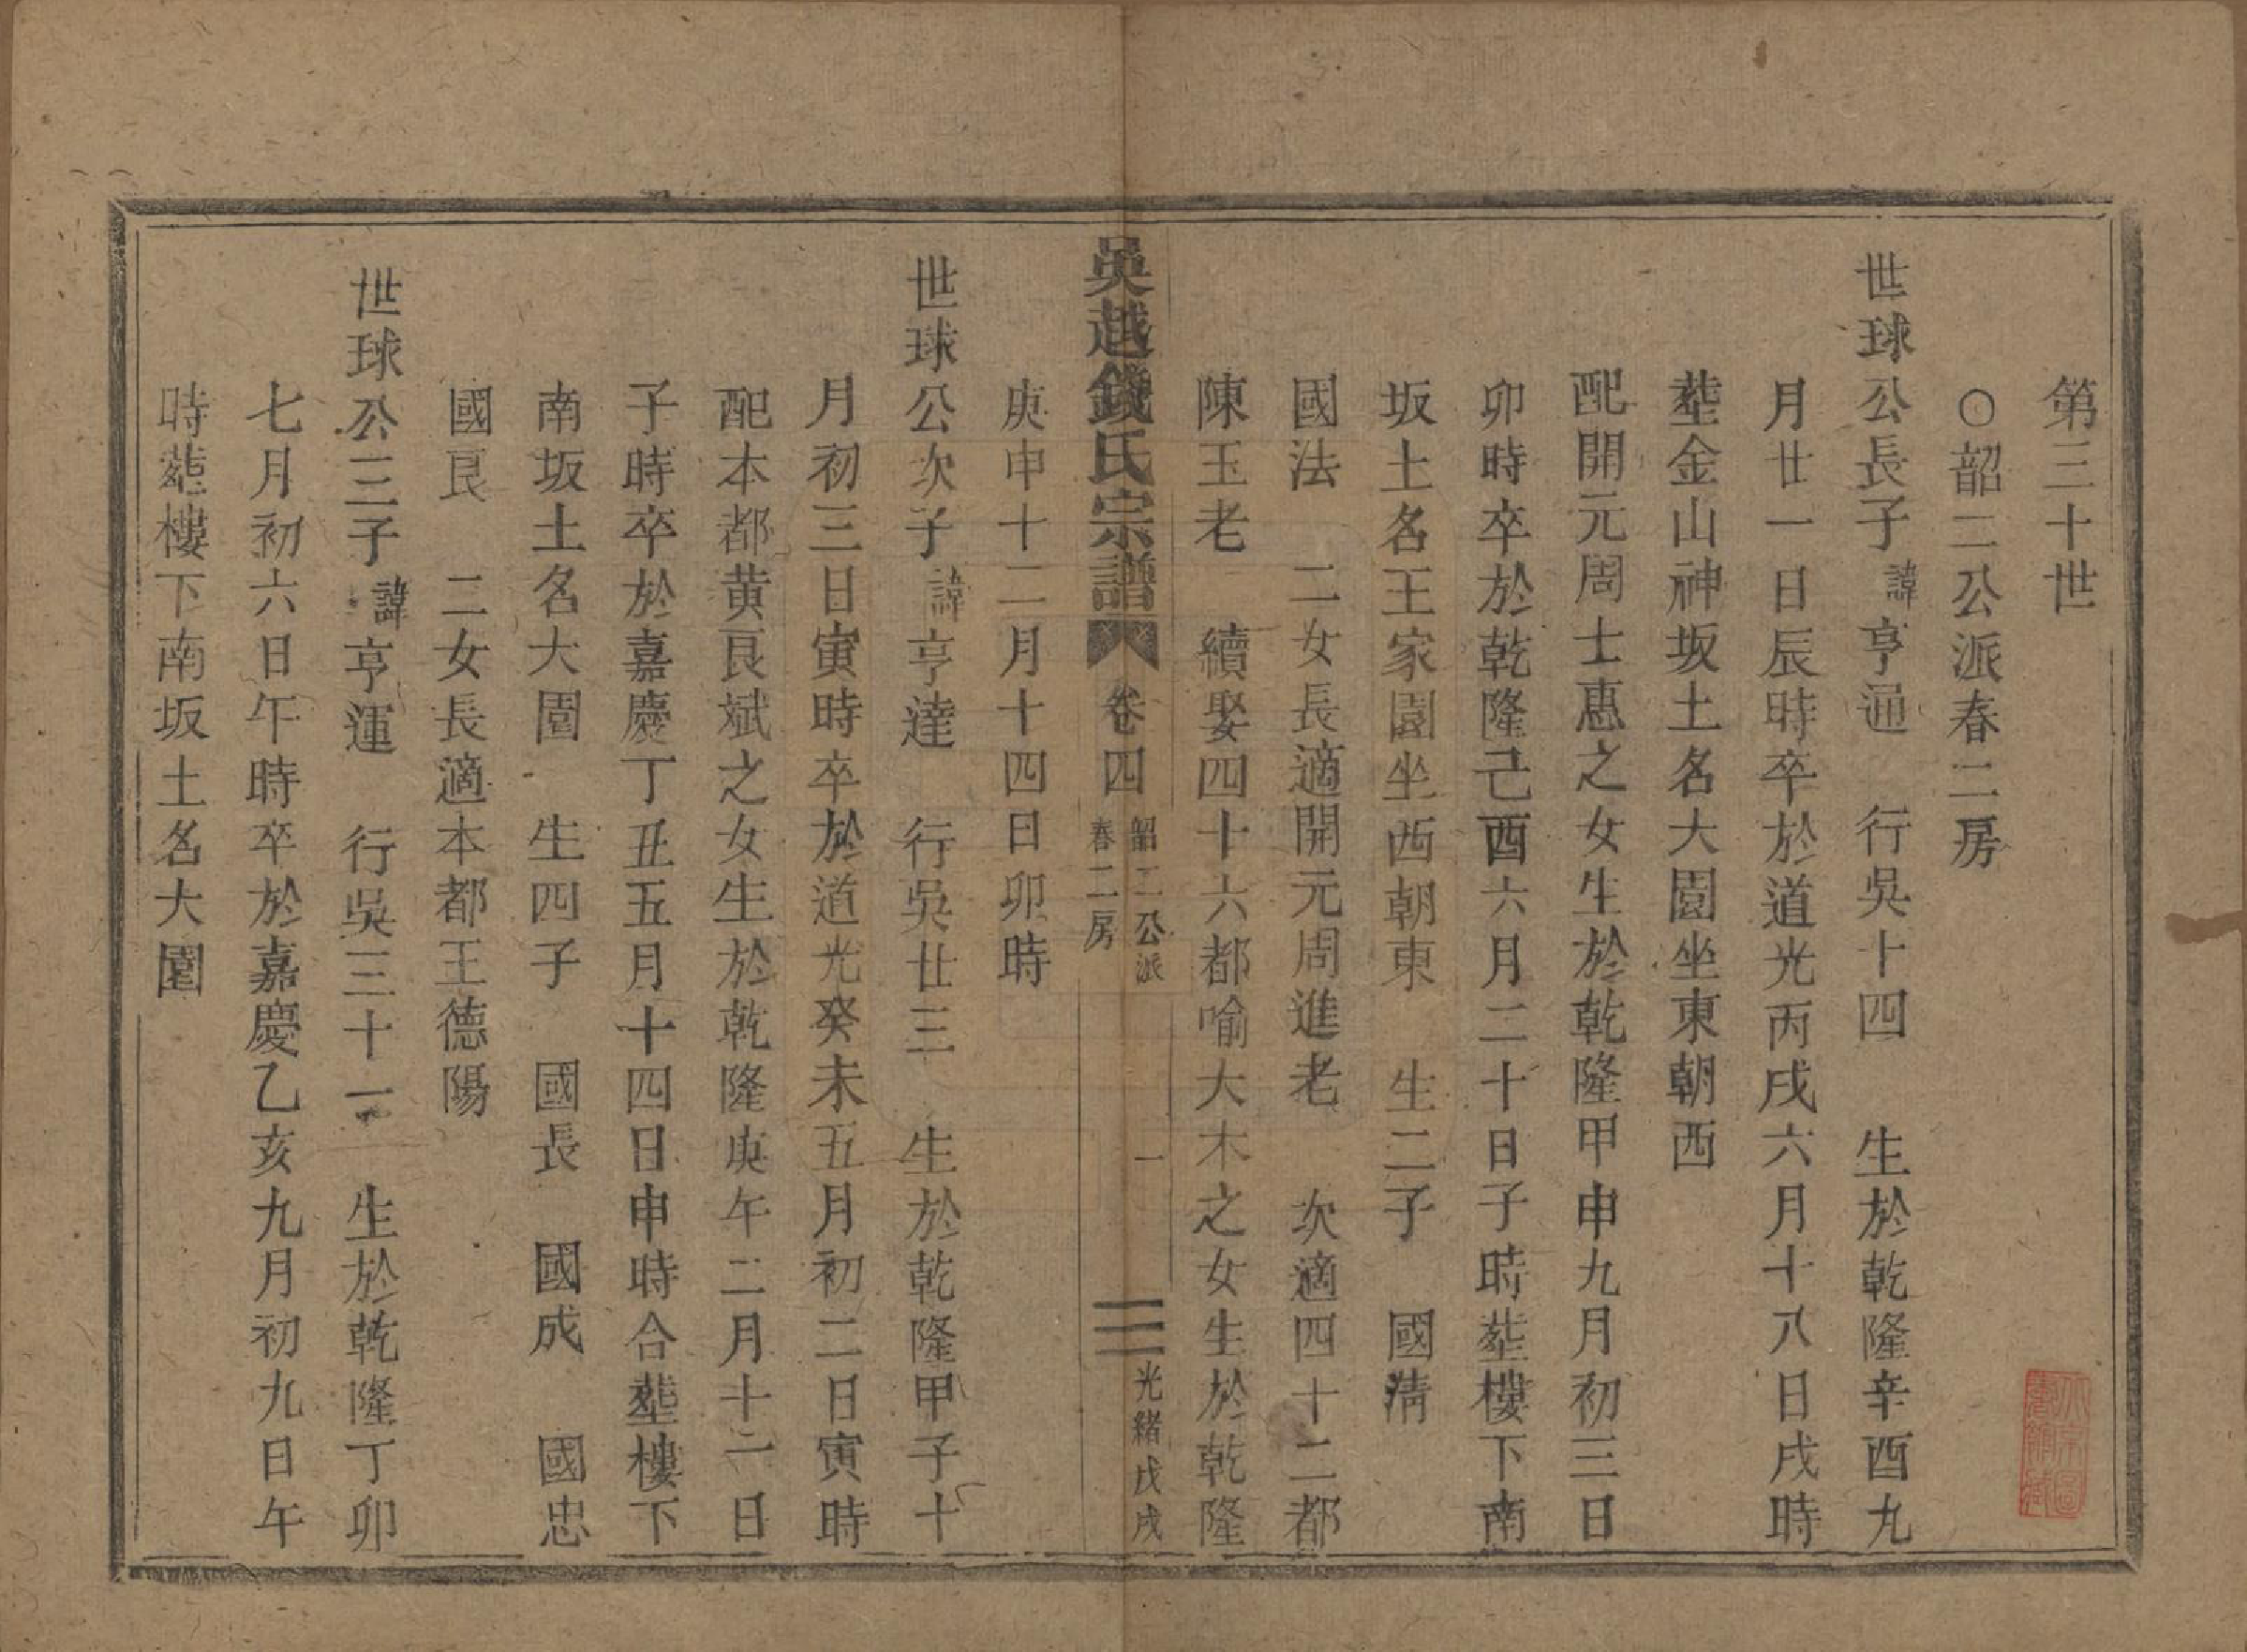 第三十世
○韶二公派春二房
世球公長子諱亨通　行吳十四　生於乾隆辛酉九
月廿一日辰時卒於道光丙戌六月十八日戌時
塟金山神坂土名大園坐東朝西
配開元周士惠之女生於乾隆甲申九月初三日
卯時卒於乾隆己酉六月二十日子時塟樓下南
坂土名王家園坐西朝東　生二子　國清
國法　二女長適開元周進老　次適四十二都
陳玉老　續娶四十六都喻大木之女生於乾隆
吳越錢氏宗譜　卷四　韶二公派春二房　一　光緒戊戌
庚申十二月十四日卯時
世球公次子諱亨達　行吳廿三　生於乾隆甲子十
月初三日寅時卒於道光癸未五月初二日寅時
配本都黄良斌之女生於乾隆庚午二月十二日
子時卒於嘉慶丁丑五月十四日申時合塟樓下
南坂土名大園　生四子　國長　國成　國忠
國良　二女長適本都王德陽
世球公三子諱亨運　行吳三十一　生於乾隆丁卯
七月初六日午時卒於嘉慶乙亥九月初九日午
時塟樓下南坂土名大園